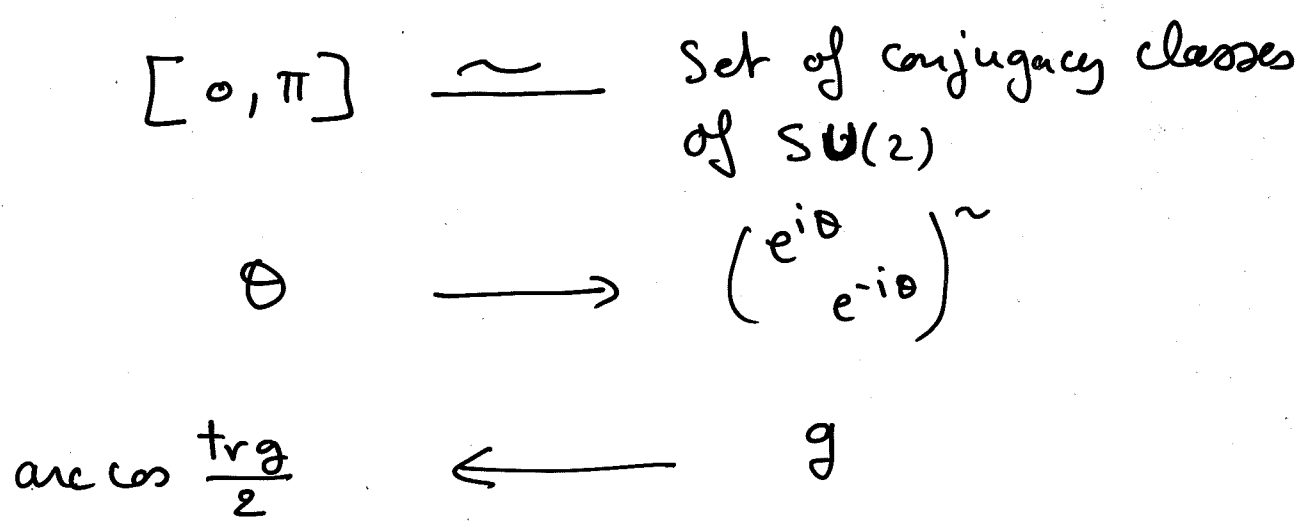 [0, π] ≃ Set of conjugacy classes
of SU(2)
θ ⟶ (e^{iθ} e^{-iθ})^~
arc cos tr g / 2 ⟵ g